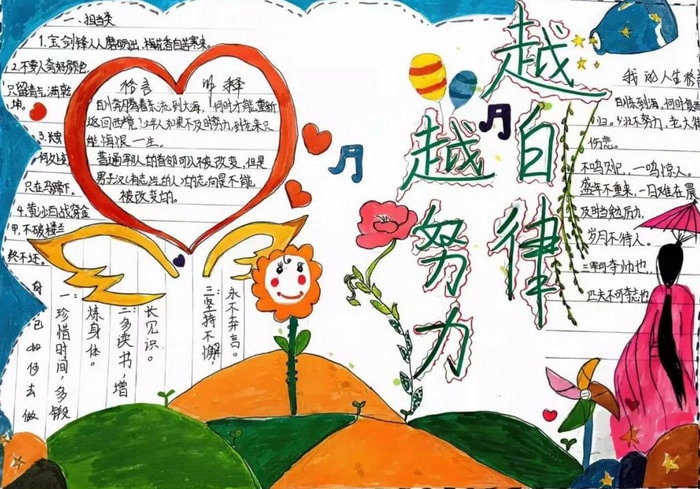 越自律
越努力
一、担当类
1.宝剑锋从磨砺出,梅花香自苦寒来。
2.不要人夸好颜色
只留清气满乾
坤。
3.
何必
只在马蹄下。
4.黄沙百战穿金
甲,不破楼兰
终不还。
格言
解释
日夜奔腾着东流到大海,何时才能重新
返回西境,少年人如果不及时努力,到老来只
能悔恨一生。
普通人的首领可以被改变,但是
男子汉(有志气的人)的志向是不能
被改变的。
自己如何去做
一:珍惜时间,多锻
炼身体。
二:多读书,增
长见识。
三:坚持不懈,
永不弃高。
我的人生格
到海,何时
归。少壮不努力,老大徒
伤悲。
不鸣则已,一鸣惊人。
盛年不重来,一日难在晨
及时当勉励,
岁月不待人。
三军可夺帅也,
匹夫不可夺志也